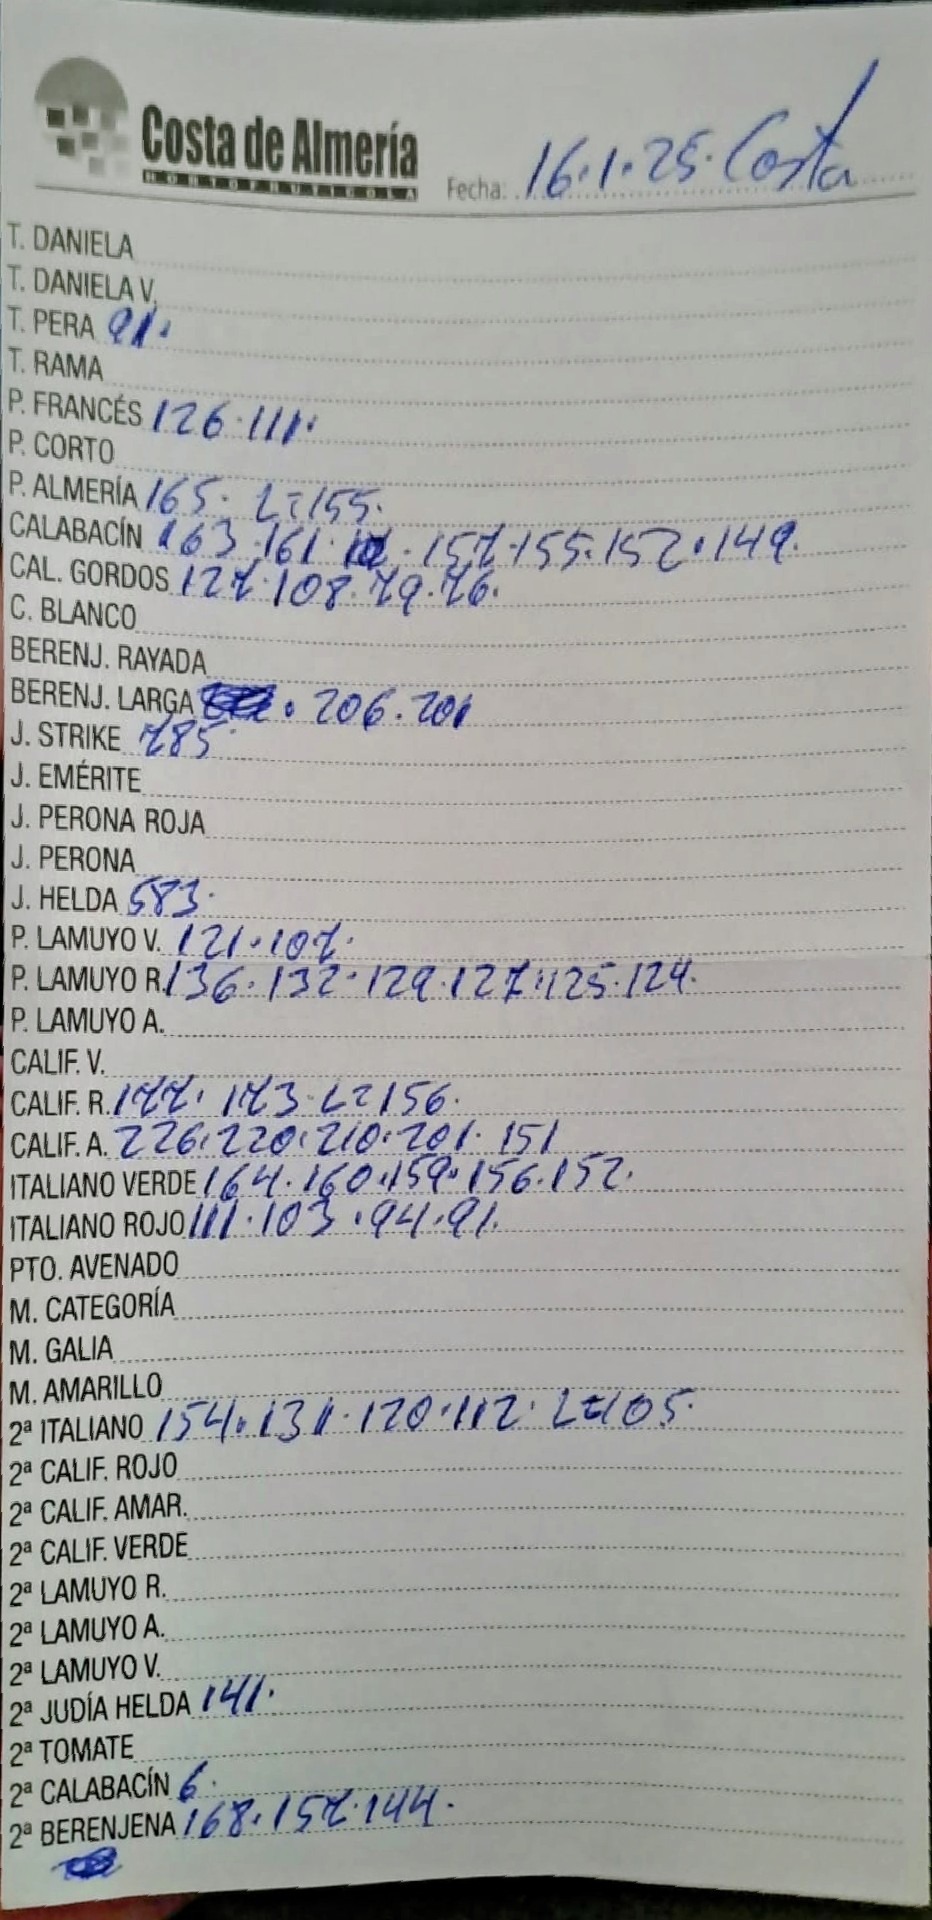 Costa de Almería
HORTOFRUTICOLA
Fecha: 16.1.25. Costa
T. DANIELA
T. DANIELA V.
T. PERA 91.
T. RAMA
P. FRANCÉS 126.111.
P. CORTO
P. ALMERÍA 165. L=155.
CALABACÍN 163.161. . 157.155.152.149.
CAL. GORDOS 127.108.79.76.
C. BLANCO
BERENJ. RAYADA
BERENJ. LARGA . 206.201
J. STRIKE 785.
J. EMÉRITE
J. PERONA ROJA
J. PERONA
J. HELDA 583.
P. LAMUYO V. 121.107.
P. LAMUYO R. 136.132.129.127.125.124.
P. LAMUYO A.
CALIF. V.
CALIF. R. 177. 173. L=156.
CALIF. A. 226.220.210.201. 151
ITALIANO VERDE 164.160.159.156.152.
ITALIANO ROJO 111.103.94.91.
PTO. AVENADO
M. CATEGORÍA
M. GALIA
M. AMARILLO
2ª ITALIANO 154.131.120.112. L=105.
2ª CALIF. ROJO
2ª CALIF. AMAR.
2ª CALIF. VERDE
2ª LAMUYO R.
2ª LAMUYO A.
2ª LAMUYO V.
2ª JUDÍA HELDA 141.
2ª TOMATE
2ª CALABACÍN 6.
2ª BERENJENA 168.157.144.